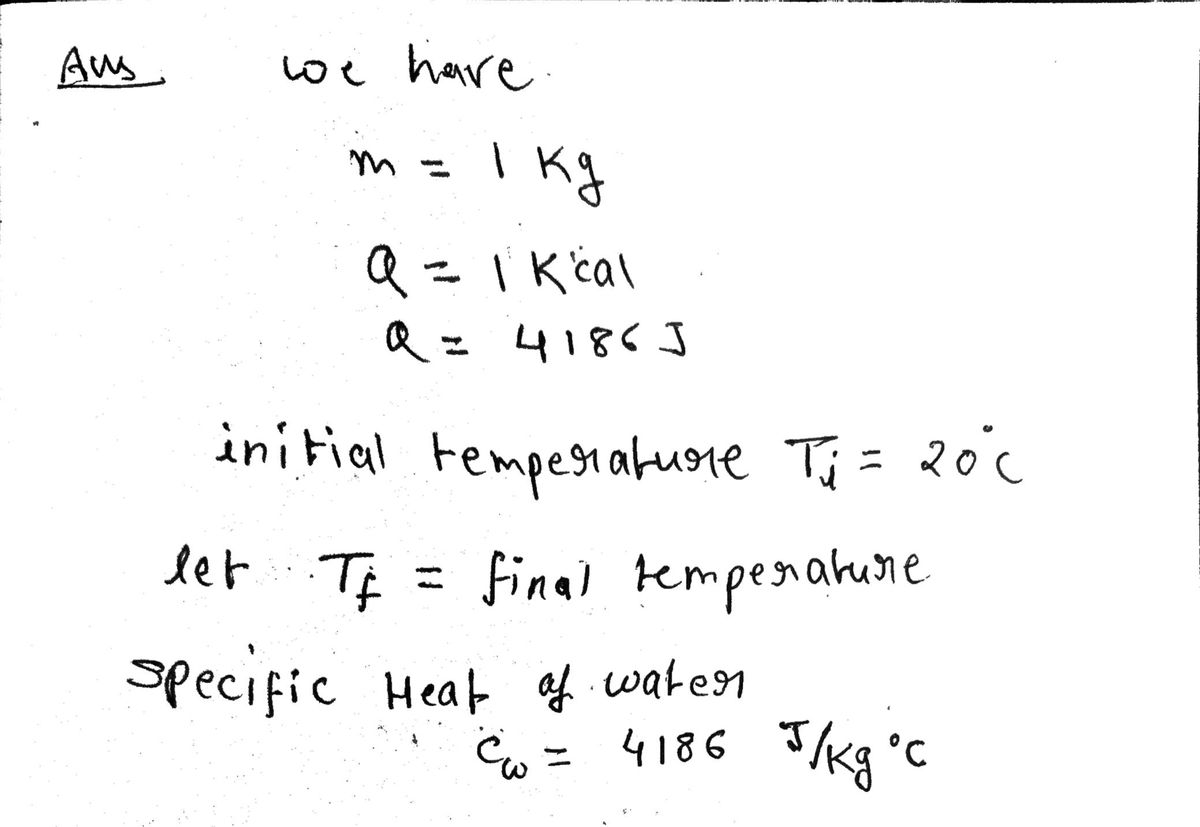 Ans we have.
m = 1 Kg
Q = 1 Kcal
Q = 4186 J
initial temperature Ti = 20°C
let Tf = final temperature
Specific Heat of water
Cw = 4186 J/Kg °C